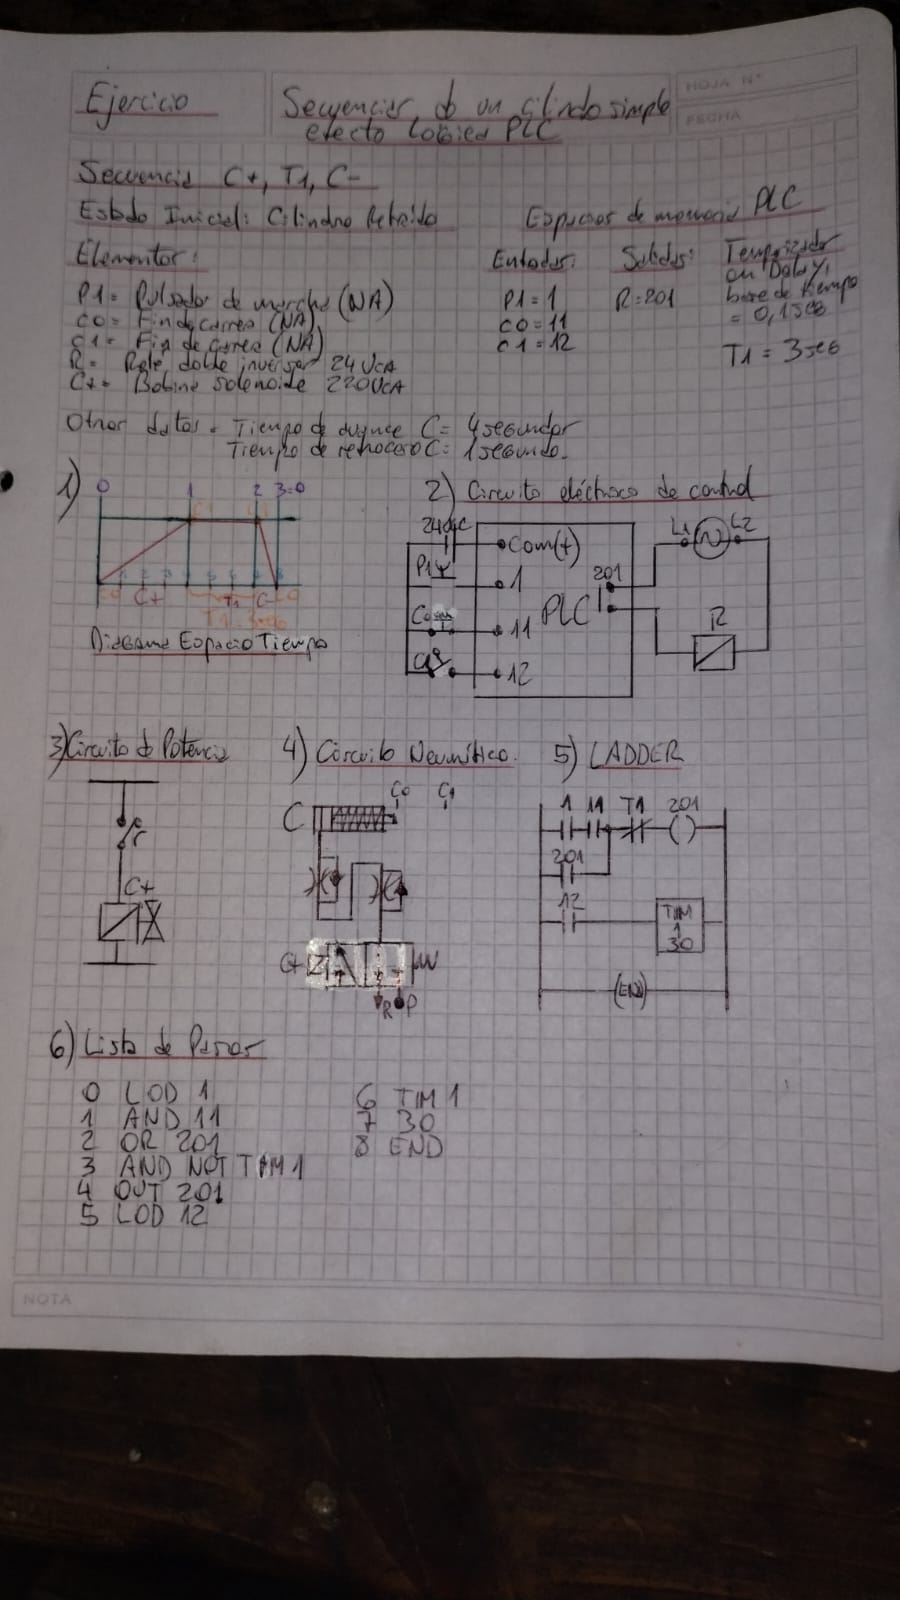 HOJA N°
FECHA
Ejercicio
Secuencias de un cilindro simple
efecto Lógica PLC
Secuencia C+, T1, C-
Estado Inicial: Cilindro Retraído
Espacios de memoria PLC
Elementos:
P1= Pulsador de marcha (NA)
C0= Fin de carrera (NA)
C1= Fin de carrera (NA)
R= Relé doble inversor 24VCA
C+= Bobina solenoide 220VCA
Entradas:
P1=1
C0=11
C1=12
Salidas:
R=201
Temporizador
on Delay,
base de tiempo
= 0,1seg
T1 = 3seg
Otros datos = Tiempo de avance C= 4segundos
Tiempo de retroceso C= 1segundo.
1)
0 1 2 3=0
C0 C+ T1 C- C0
T1=3seg
Diagrama Espacio Tiempo
2) Circuito eléctrico de control
Com(+)
P1
1
C0
11
12
PLC
201
L1
L2
R
3) Circuito de Potencia
r
C+
4) Circuito Neumático.
C0 C1
C
C+
R P
5) LADDER
1 11 T1 201
201
12
TIM
1
30
(END)
6) Lista de Pasos
0 LOD 1
1 AND 11
2 OR 201
3 AND NOT TIM 1
4 OUT 201
5 LOD 12
6 TIM 1
7 30
8 END
NOTA